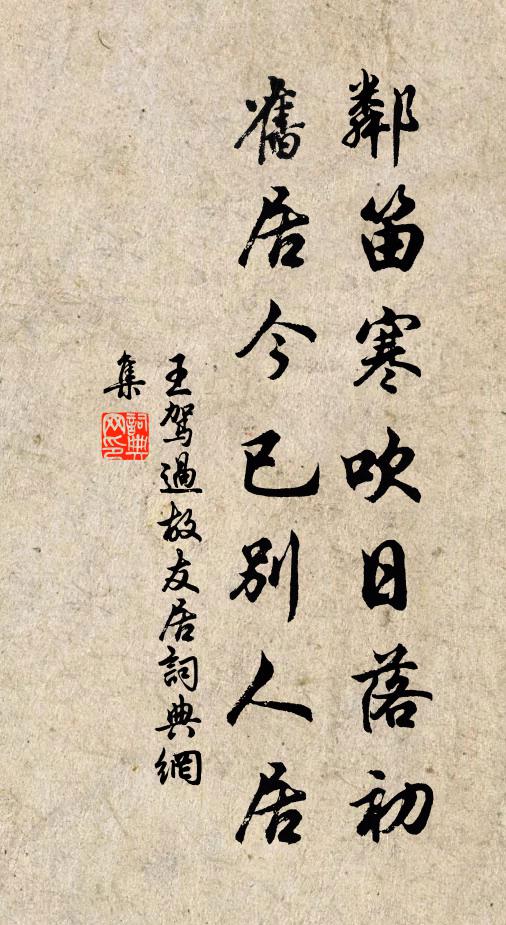 鄰笛寒吹日落初
舊居今已別人居
王駕過故友居詞典網
集
詞典
网印